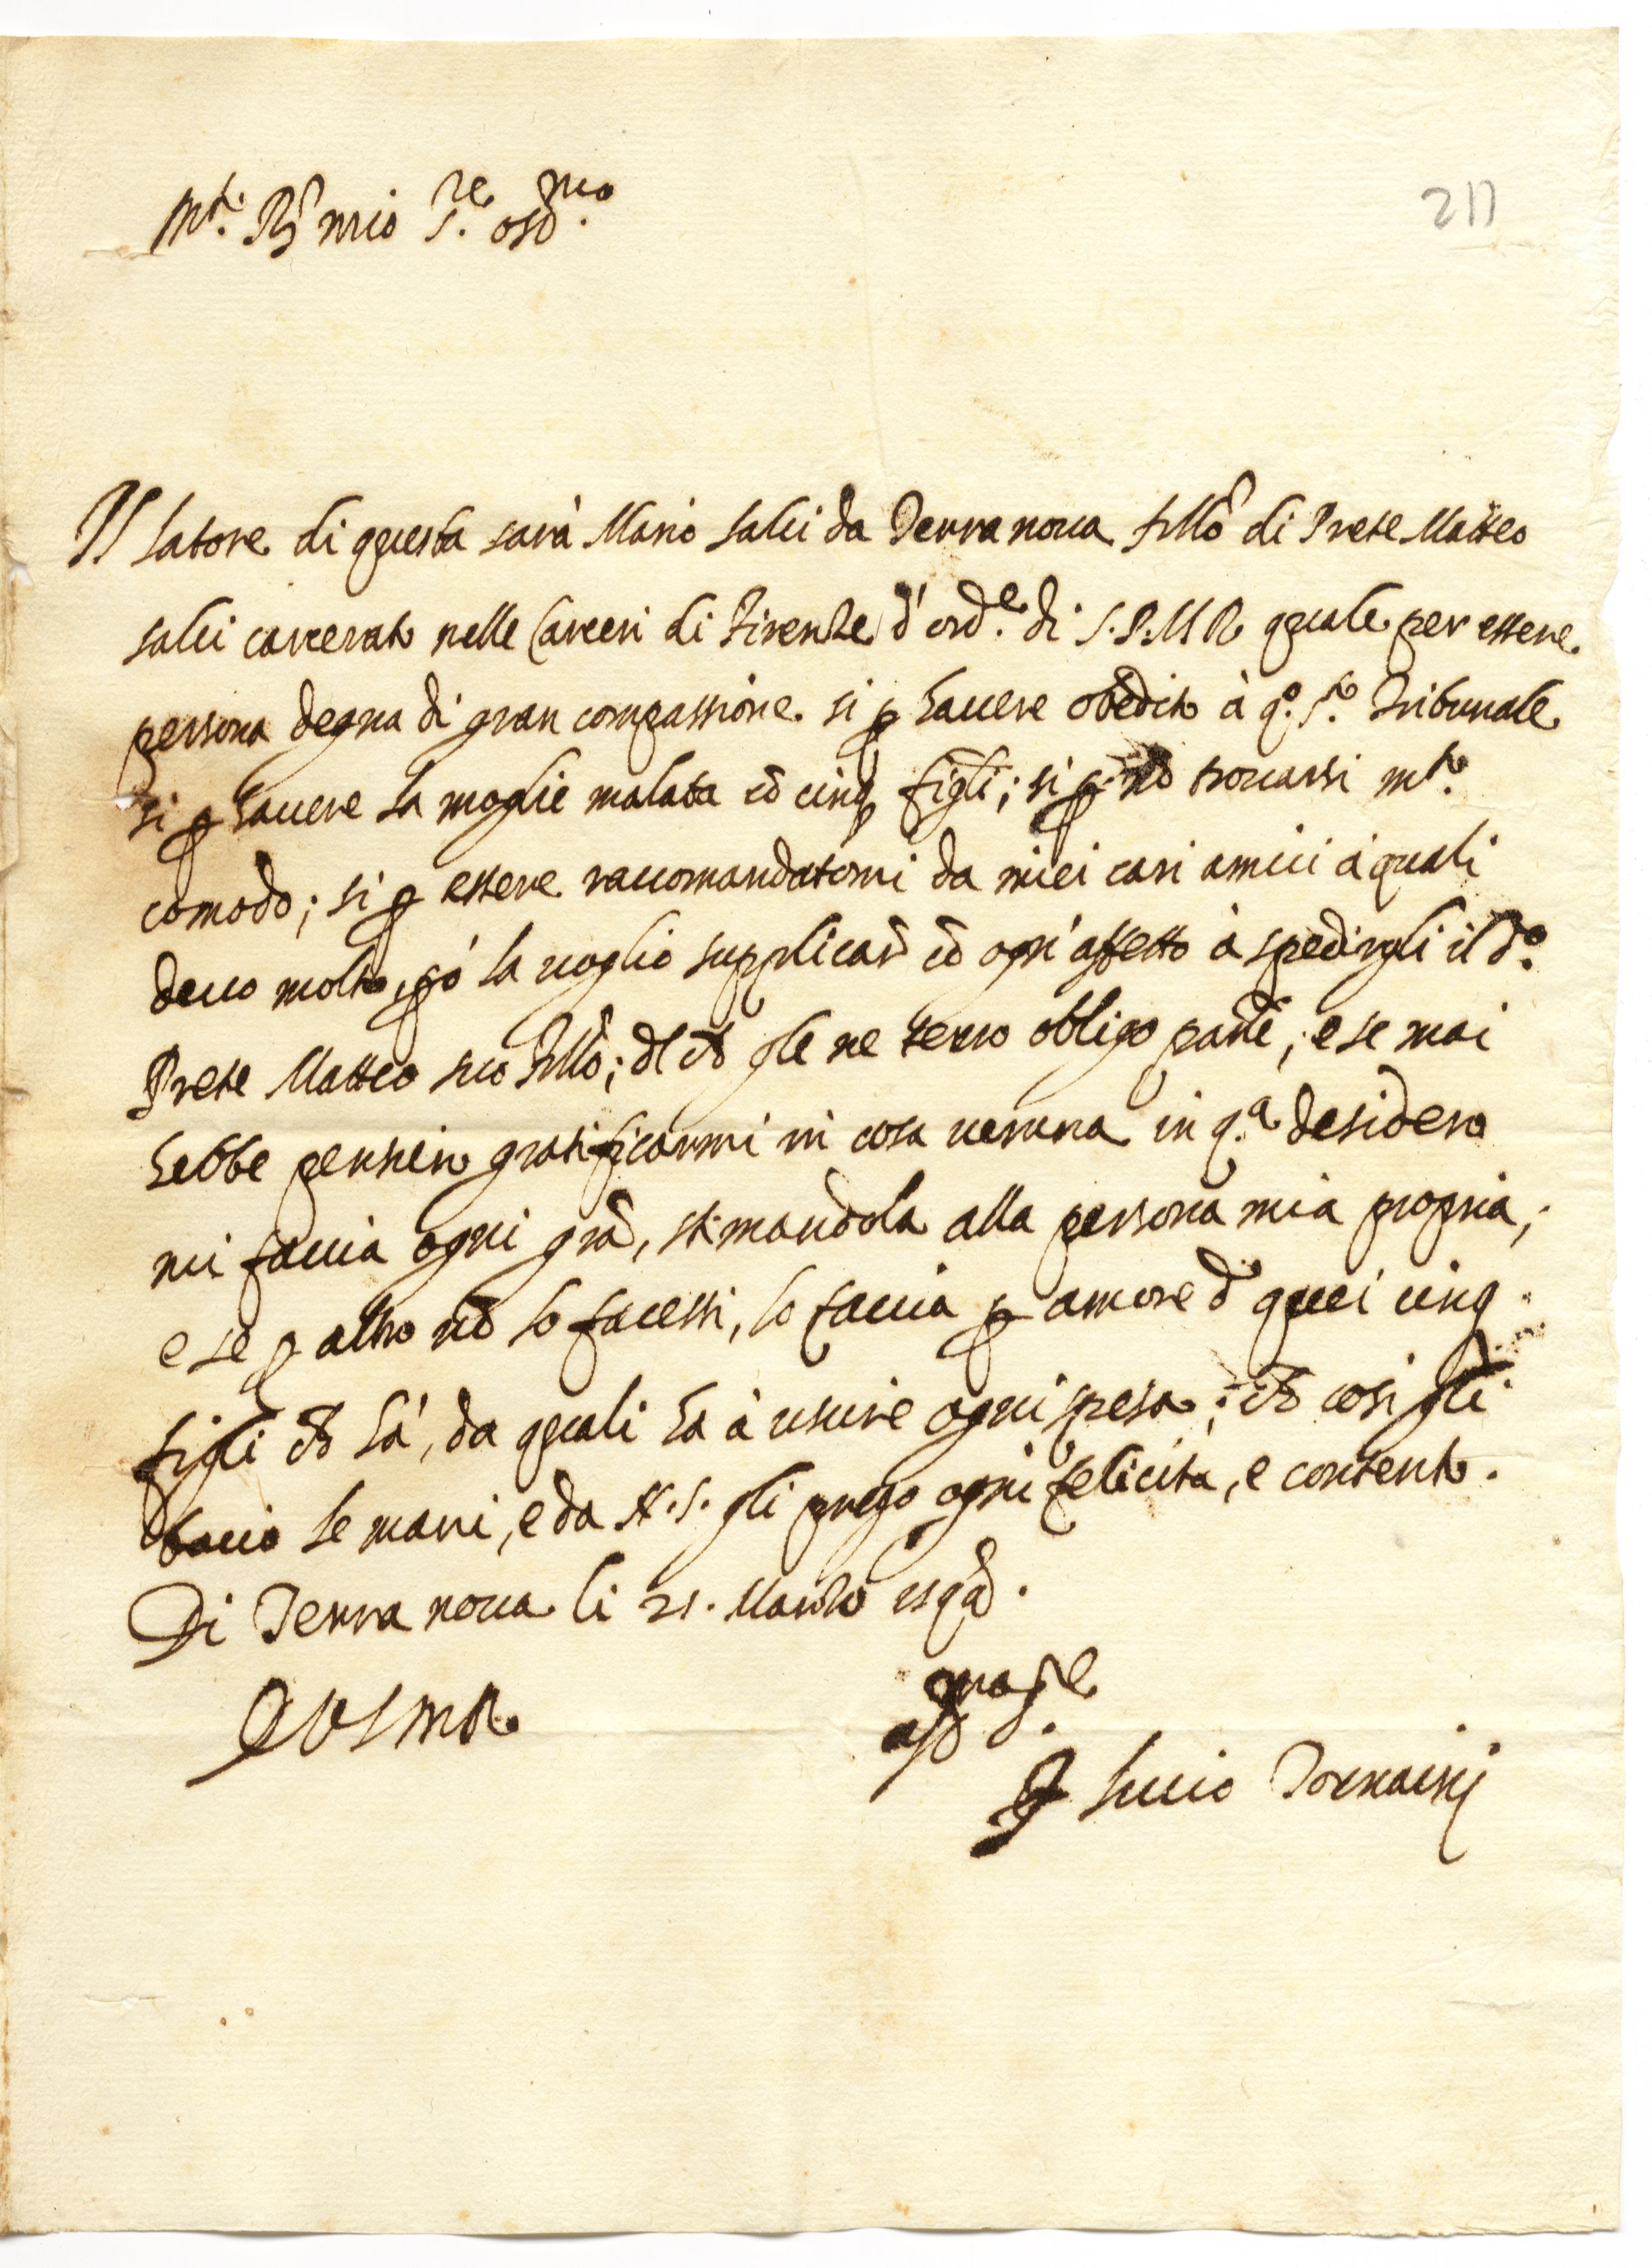 M.to R. mio S.re oss.mo
211
Il latore di questa sarà Mario Salci da Terra noua f'llo di Prete Matteo
Salci carcerato nelle Carceri di Firenze d'ord.e di S.P.M R quale per essere
persona degna di gran compassione si p hauere obedito à q.o S.to Tribunale
si p hauere la moglie malata cō cinq figli; si p nō trouarsi m.to
comodo; si p essere raccomandatomi da miei cari amici à quali
deuo molto, pò la uoglio supplicar cō ogn'affetto à spedirgli il d.o
Prete Matteo suo f'llo; che gle ne terrò obligo; e se mai
hebbe pensiero gratificarmi in cosa ueruna in q.a desidero
mi faccia ogni grā, stimandola alla persona mia propria;
e se p altro nō lo facessi, lo faccia p amore d quei cinq.
figli hà, da quali ha à uscire ogni spesa; cosi gli
bacio le mani, e da N.S. gli prego ogni felicità, e contento.
Di Terra noua li 21. Marzo
D V S M R
aff
Lucio Tornaini